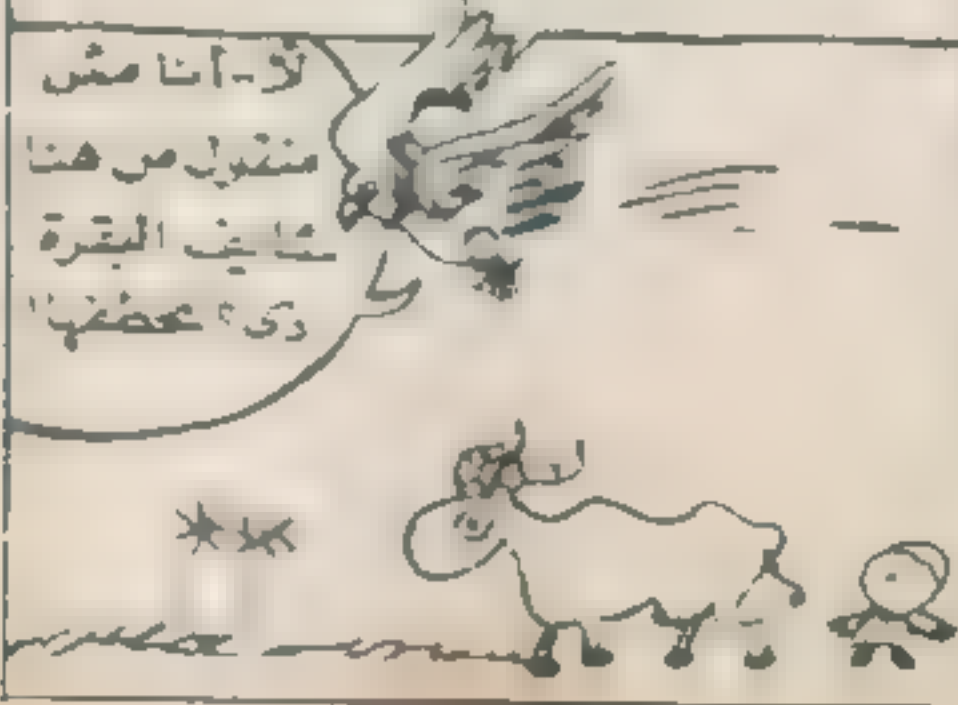 لأ - أنا مش
منقول من هنا
شايف البقرة
دى؟